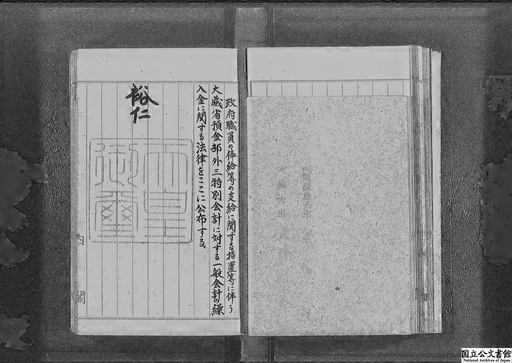 政府職員の俸給等の支給に関する措置等に伴う
大蔵省預金部外三特別会計に対する一般会計の繰
入金に関する法律をここに公布する。
裕仁
天皇
御璽
国立公文書館
National Archives of Japan